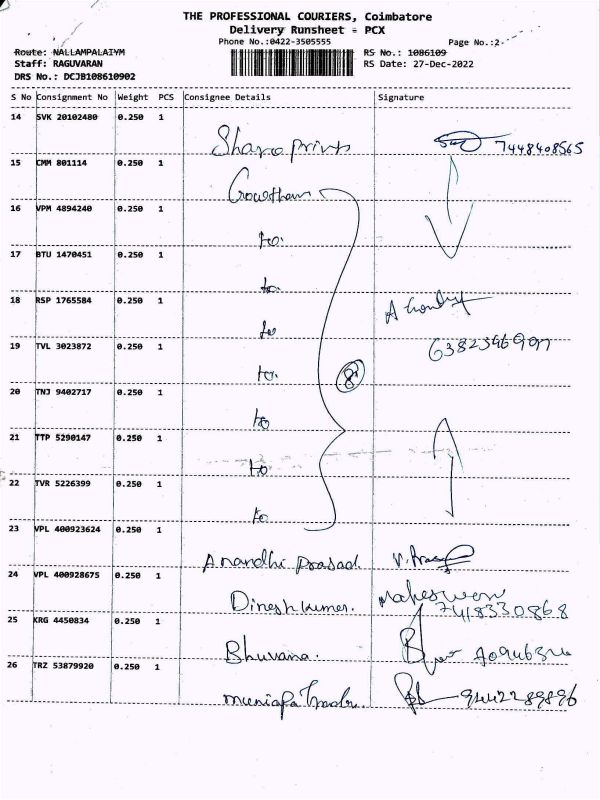 THE PROFESSIONAL COURIERS, Coimbatore
Delivery Runsheet - PCX
Phone No.:0422-3505555
Page No.:2
Route: NALLAMPALAIYM
RS No.: 1086109
Staff: RAGUVARAN
RS Date: 27-Dec-2022
DRS No.: DCJB108610902
S No Consignment No Weight PCS Consignee Details Signature
14 SVK 20102480 0.250 1
Sharoprints 7448408565
15 CMM 801114 0.250 1
Gowtham
16 VPM 4894240 0.250 1
to
17 BTU 1470451 0.250 1
to
18 RSP 1765584 0.250 1
to
19 TVL 3023872 0.250 1
to 8
20 TNJ 9402717 0.250 1
to
21 TTP 5290147 0.250 1
to
22 TVR 5226399 0.250 1
to
23 VPL 400923624 0.250 1
Anandhi Prasad.
24 VPL 400928675 0.250 1
Dineshkumar. Maheswari
7418330868
25 KRG 4450834 0.250 1
Bhuvana.
26 TRZ 53879920 0.250 1